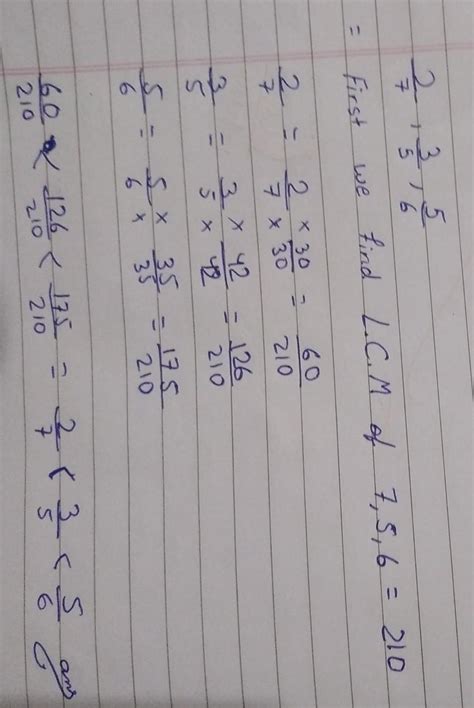 2/7, 3/5, 5/6
= First we find L.C.M of 7,5,6 = 210
2/7 = 2/7 × 30/30 = 60/210
3/5 = 3/5 × 42/42 = 126/210
5/6 = 5/6 × 35/35 = 175/210
60/210 < 126/210 < 175/210 = 2/7 < 3/5 < 5/6 ans